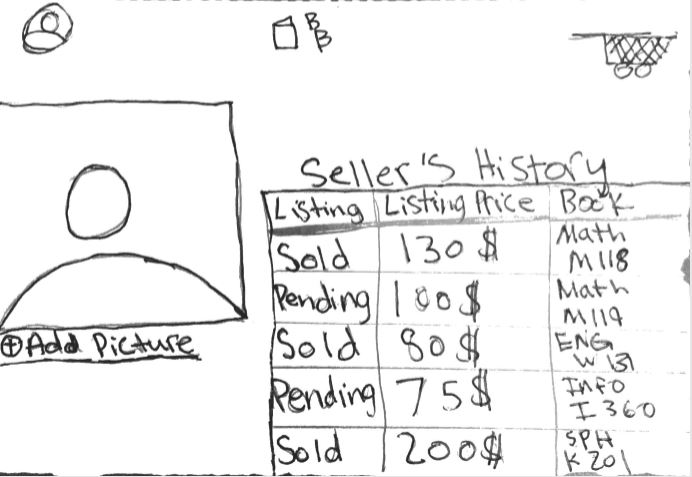 B
B
Seller's History
Listing Listing Price Book
Sold 130 $ Math
M118
Pending 100 $ Math
M119
Sold 80 $ ENG
W 131
Pending 75 $ INFO
I 360
Sold 200 $ SPH
K 201
+ Add Picture